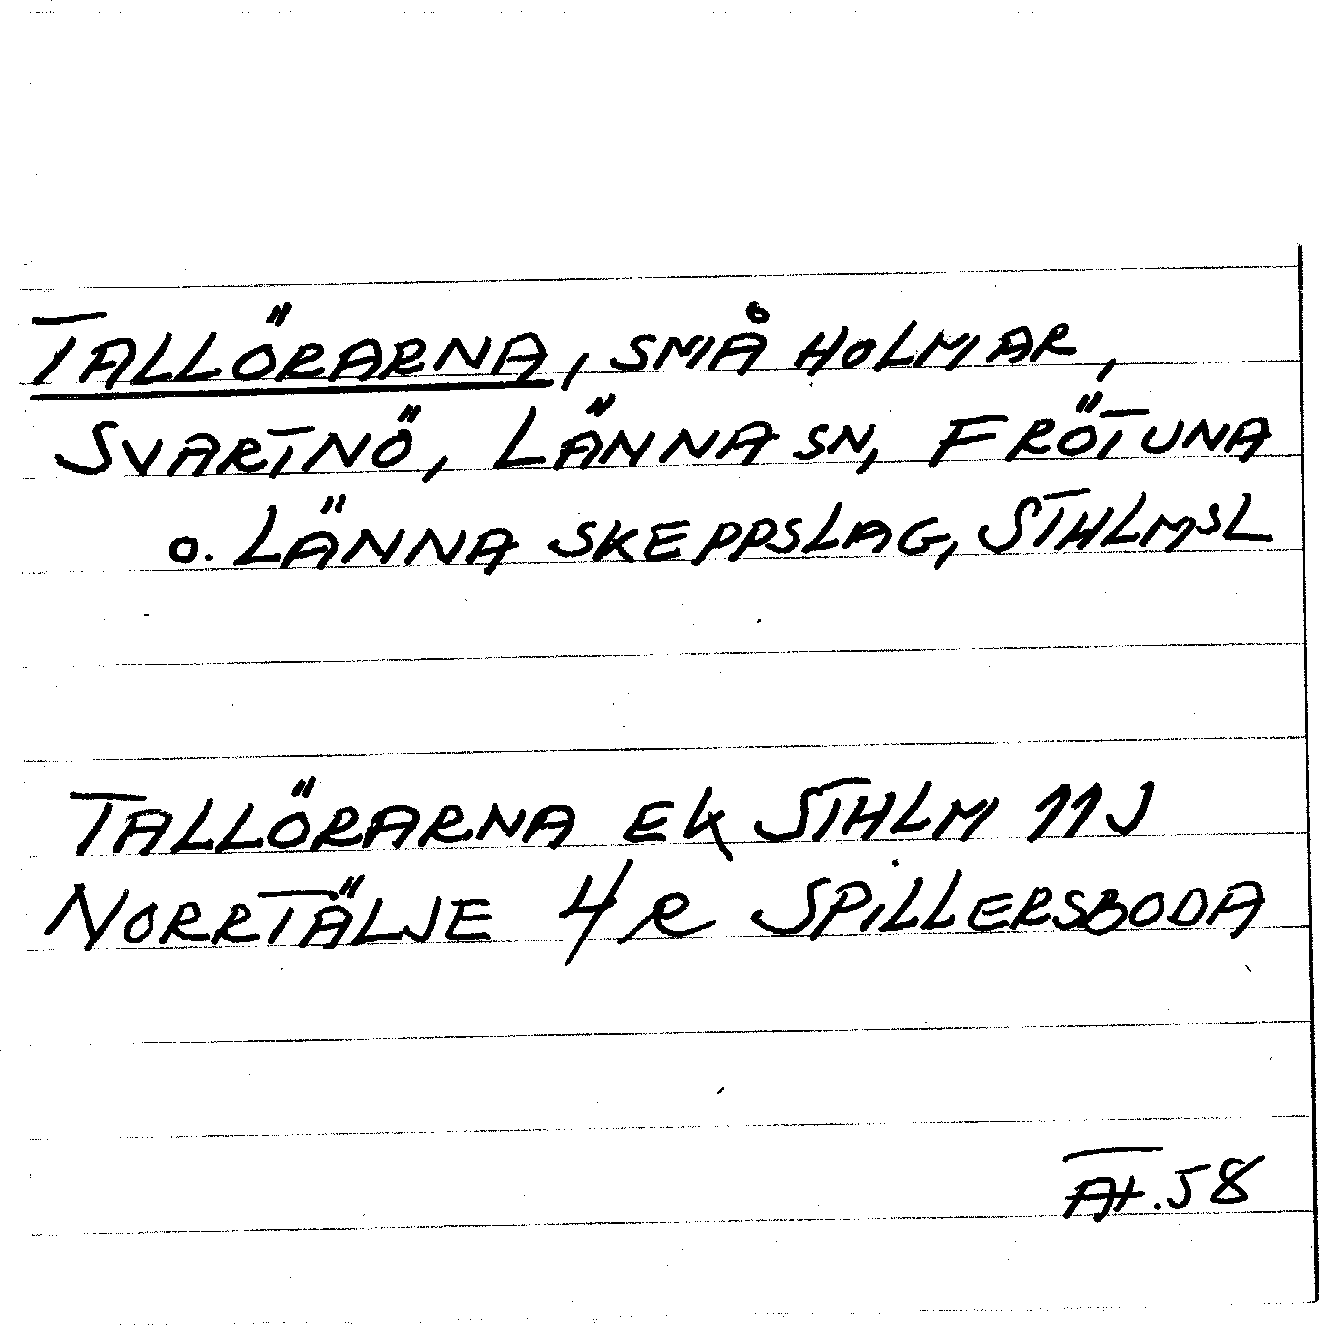 TALLÖRARNA, SMÅ HOLMAR,
SVARTNÖ, LÄNNA SN, FRÖTUNA
O. LÄNNA SKEPPSLAG, STHLMSL
TALLÖRARNA EK STHLM 11J
NORRTÄLJE 4 R SPILLERSBODA
58